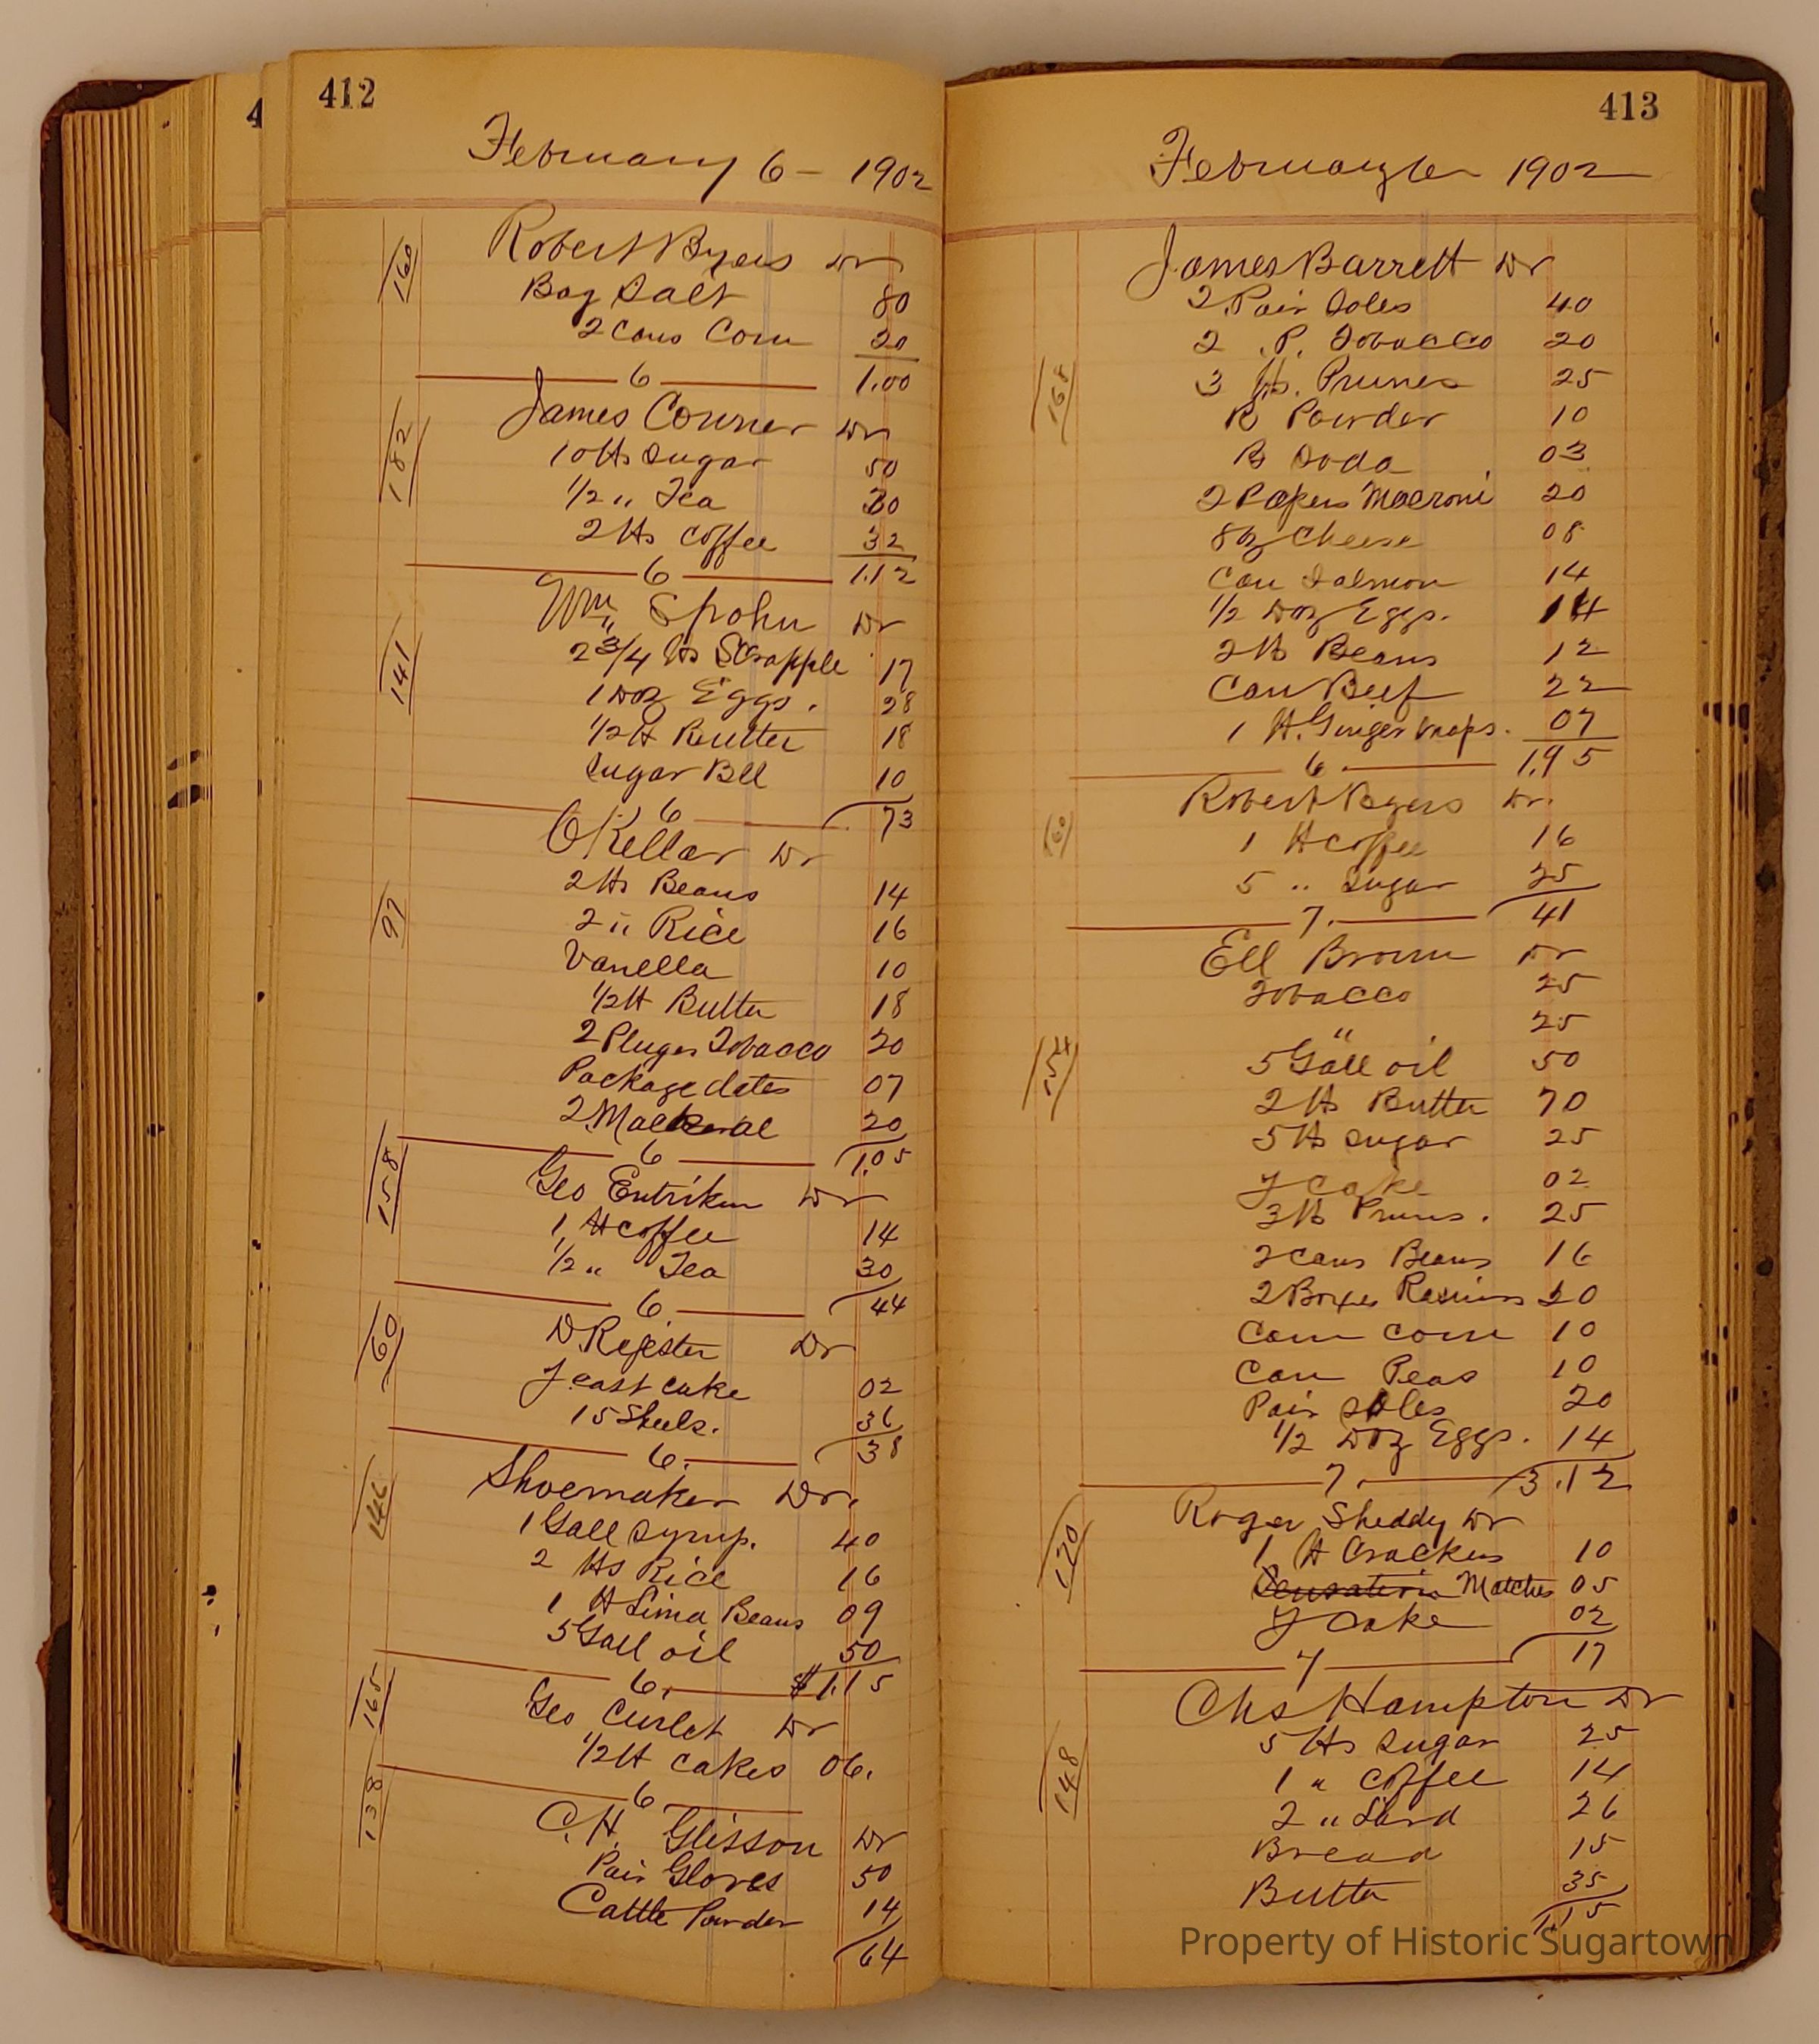 412
February 6 - 1902
160
Robert Byers Dr
Bag Salt 80
2 Cans Corn 20
6 1.00
182
James Conner Dr
10 lbs Sugar 50
1/2 " Tea 30
2 lbs Coffee 32
6 1.12
141
Wm Spohn Dr
2 3/4 lbs Scrapple 17
1 Doz Eggs. 28
1/2 lb Butter 18
Sugar Bll 10
6 73
97
O Kellar Dr
2 lbs Beans 14
2 " Rice 16
Vanella 10
1/2 lb Butter 18
2 Pluges Tobacco 20
Package dates 07
2 Mackeral 20
6 1.05
158
Geo Entriken Dr
1 lb Coffee 14
1/2 " Tea 30
6 44
60
D Regester Dr
Yeast cake 02
15 36
6. 38
146
Shoemaker Dr.
1 Gall Syrup. 40
2 lbs Rice 16
1 lb Lima Beans 09
5 Gall oil 50
6. $1.15
165
Geo Curlet Dr
1/2 lb Cakes 06.
6
138
C. H. Glisson Dr
Pair Gloves 50
Cattle Powder 14
64
4
413
February 6 1902
James Barrett Dr
2 Pair Soles 40
2 P. Tobacco 20
168
3 lbs. Prunes 25
B Powder 10
B Soda 03
2 Papers Macroni 20
8 oz Cheese 08
Can Salmon 14
1/2 Doz Eggs. 14
2 lb Beans 12
Can Beef 22
1 lb. Ginger snaps. 07
6 1.95
Robert Byers Dr.
160
1 lb Coffee 16
5 " Sugar 25
7. 41
Ell Brown Dr
Tobacco 25
" 25
154
5 Gall oil 50
2 lbs Butter 70
5 lbs Sugar 25
Y Cake 02
3 lb Pruns. 25
2 Cans Beans 16
2 Boxes Rasins 20
Can Corn 10
Can Peas 10
Pair Soles 20
1/2 Doz Eggs. 14
7. 3.12
170
Roger Sheddy Dr
1 lb Crackers 10
Sensation Matches 05
Y Cake 02
7 17
Chs Hampton Dr
5 lbs Sugar 25
148
1 " Coffee 14
2 " Lard 26
Bread 15
Butter 35
1.15
Property of Historic Sugartown